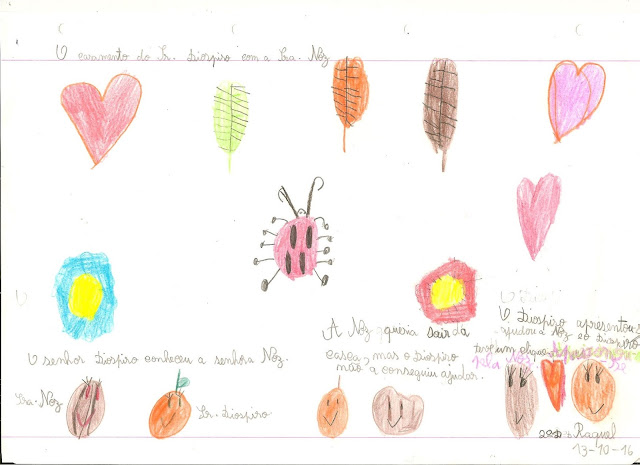 O casamento do Sr. Diospiro com a Sra. Noz
O senhor Diospiro conheceu a senhora Noz.
Sra. Noz
Sr. Diospiro
A Noz queria sair da
casca, mas o Diospiro
não a conseguiu ajudar.
O Diospiro apresentou-se
ajudou a Noz e o Diospiro
teve um clique
pela Noz.
Apaixonou-se
Raquel
13-10-16